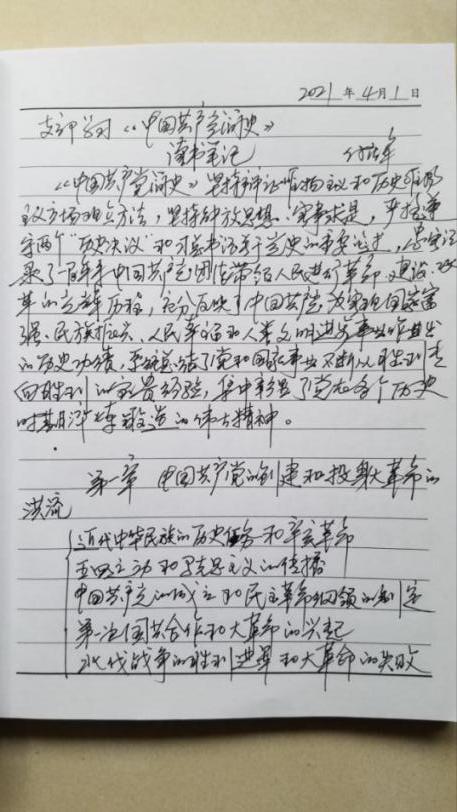 2021 年 4 月 1 日
《中国共产党简史》
读书笔记
《中国共产党简史》坚持辩证唯物主义和历史唯物
主义立场观点方法，坚持解放思想、实事求是，严格遵
守两个“历史决议”和习总书记关于党史的重要论述，忠实记
录了一百年来中国共产党团结带领人民进行革命、建设、改
革的光辉历程，充分反映了中国共产党为实现国家富
强、民族振兴、人民幸福和人类文明进步事业作出
的历史功绩，系统总结了党和国家事业不断从胜利走
向胜利的宝贵经验，集中彰显了党在各个历史
时期淬炼锻造的伟大精神。
第一章 中国共产党的创建和投身大革命的
洪流
近代中华民族的历史任务和辛亥革命
五四运动和马克思主义的传播
中国共产党的成立和民主革命纲领的制定
第一次国共合作和大革命的兴起
北伐战争的胜利进军和大革命的失败